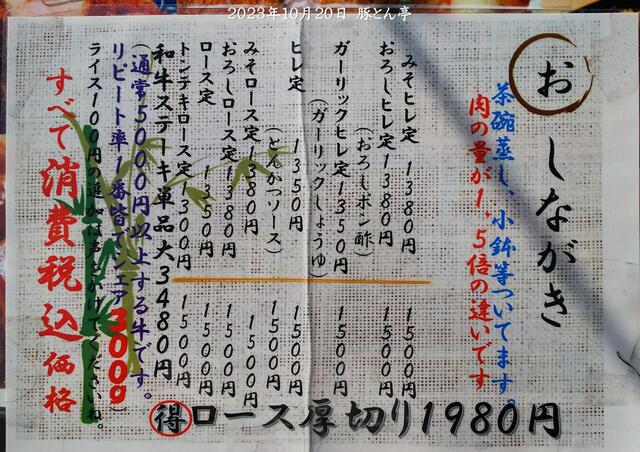 2023年10月20日 豚とん亭
おしながき
茶碗蒸し、小鉢等ついてます。
肉の量が1,5倍の違いです
みそヒレ定 1380円 1500円
おろしヒレ定1380円 1500円
(おろしポン酢)
ガーリックヒレ定1350円 1500円
(ガーリックしょうゆ)
ヒレ定 1350円 1500円
(とんかつソース)
みそロース定1380円 1500円
おろしロース定1380円 1500円
ロース定 1350円 1500円
トンテキロース定1300円 1500円
和牛ステーキ単品大3480円
(通常5000円以上する牛です。
リピート率1番皆でシェア300g)
ライス100円の追加は声をかけてくださいね。
すべて消費税込価格
得ロース厚切り1980円